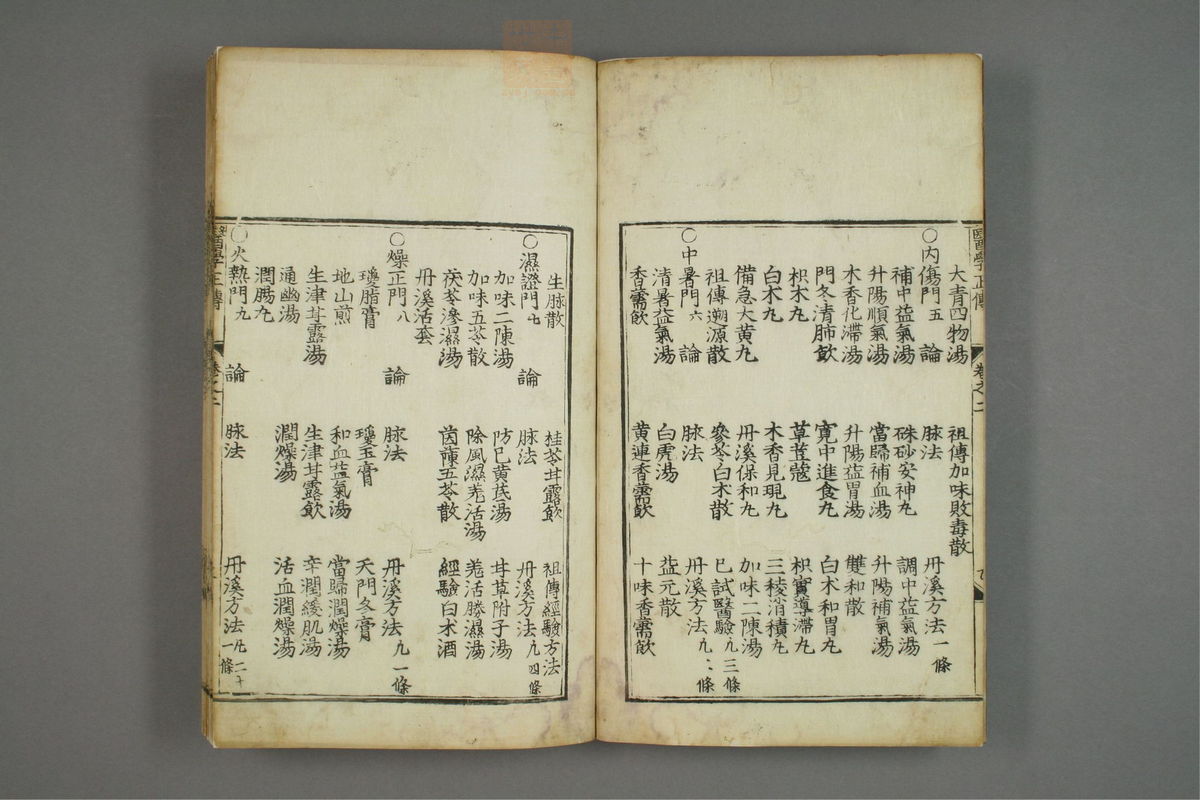 醫學正傳 卷之二
大青四物湯 祖傳加味敗毒散
○內傷門五 論 脉法 丹溪方法一條
補中益氣湯 硃砂安神丸 調中益氣湯
升陽順氣湯 當歸補血湯 升陽補氣湯
木香化滯湯 升陽益胃湯 雙和散
門冬清肺飮 寬中進食丸 白朮和胃丸
枳朮丸 草荳蔻 枳實導滯丸
白朮丸 木香見晛丸 三稜消積丸
備急大黃丸 丹溪保和丸 加味二陳湯
祖傳遡源散 參苓白朮散 已試醫驗凡三條
○中暑門六 論 脉法 丹溪方法凡二條
清暑益氣湯 白虎湯 益元散
香薷飮 黃連香薷飮 十味香薷飮
生脉散 桂苓甘露飮 祖傳經驗方法
○濕證門七 論 脉法 丹溪方法凡四條
加味二陳湯 防已黃芪湯 甘草附子湯
加味五苓散 除風濕羌活湯 羌活勝濕湯
茯苓滲濕湯 茵蔯五苓散 經驗白朮酒
丹溪活套
○燥正門八 論 脉法 丹溪方法凡一條
瓊脂膏 瓊玉膏 天門冬膏
地山煎 和血益氣湯 當歸潤燥湯
生津甘露湯 生津甘露飮 辛潤緩肌湯
通幽湯 潤燥湯 活血潤燥湯
潤腸丸
○火熱門九 論 脉法 丹溪方法凡二十一條
醫學正傳 卷之二